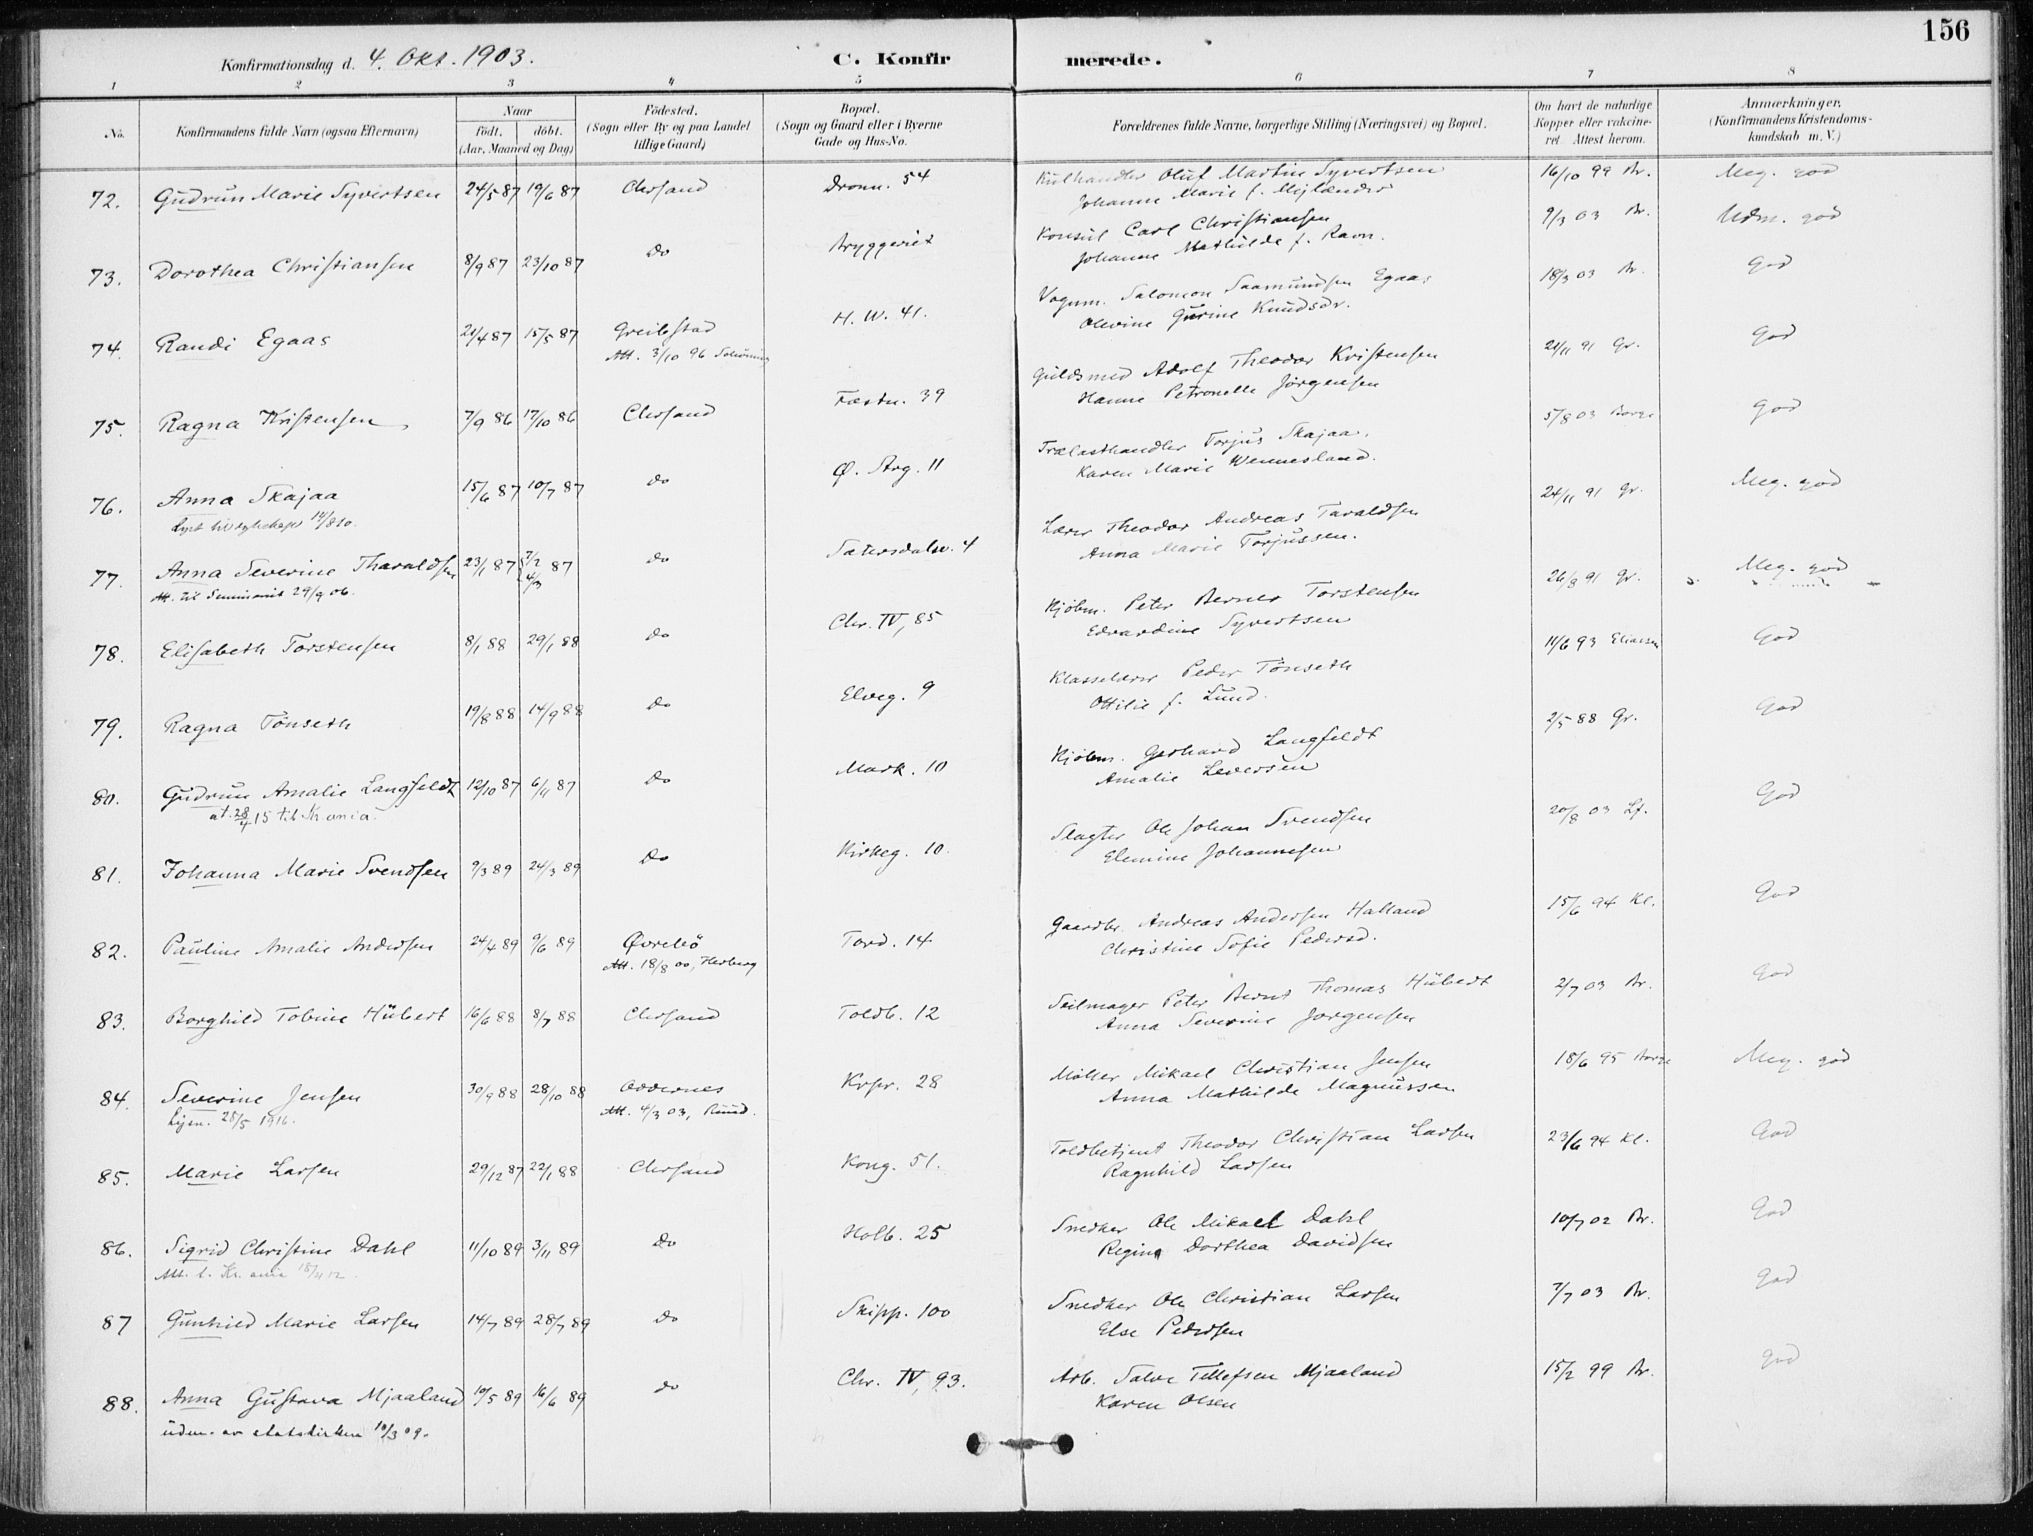 156
Konfirmationsdag d. 4. Okt. 1903.
C. Konfirmerede.
1 2 3 4 5 6 7 8
No.
Konfirmandens fulde Navn (ogsaa Efternavn)
Naar
født. døbt.
(Aar, Maaned og Dag)
Fødested.
(Sogn eller By og paa Landet
tillige Gaard)
Bopæl.
(Sogn og Gaard eller i Byerne
Gade og Hus-No.
Forældrenes fulde Navne, borgerlige Stilling (Næringsvei) og Bopæl.
Om havt de naturlige
Kopper eller vakcine-
ret Attest herom.
Anmærkninger,
(Konfirmandens Kristendoms-
kundskab m. V.)
72. Gudrun Marie Syvertsen 24/5 87 19/6 87 Chrsand Dronn. 54 Kulhandler Oluf Martin Syvertsen 16/10 99 Br. Meg. god
Johanne Marie f. Mejlænder
73. Dorothea Christiansen 8/9 87 23/10 87 do Bryggeriet Konsul Carl Christiansen 9/3 03 Br. Udm. god
Johanne Mathilde f. Ravn.
74. Randi Egaas 21/4 87 15/5 87 Greibstad H. W. 41. Vognm. Salomon Saamundsen Egaas 18/3 03 Br. God
Att. 3/10 96 Olevine Gurine Knudsdr.
75. Ragna Kristensen 7/9 86 17/10 86 Chrsand Fæstn. 39 Guldsmed Adolf Theodor Kristensen 21/11 91 Gr. God
Hanne Petronelle Jørgensen
76. Anna Skajaa 15/6 87 10/7 87 do Ø. Strg. 11 Trælasthandler Torjus Skajaa. 5/8 03 God
14/8 10. Karen Marie Wennesland.
77. Anna Severine Tharaldsen 23/1 87 7/2 4/3 87 do Sætersdalsv. 4 Lærer Theodor Andreas Taraldsen 24/11 91 Gr. Meg. god
Att. til Seminariet 29/9 06. Anna Marie Torjussen.
78. Elisabeth Torstensen 8/1 88 29/1 88 do Chr. IV, 85 Kjøbm. Peter Berner Torstensen 26/8 91 Gr. Meg. god
Edvardine Syvertsen
79. Ragna Tønseth 19/8 88 14/9 88 do Elveg. 9 Klasselærer Peder Tønseth 11/6 93 Eliassen God
Ottilie f. Lund.
80. Gudrun Amalie Langfeldt 12/10 87 6/11 87 do Mark. 10 Kjøbm. Gerhard Langfeldt 2/5 88 Gr. God
at. 28/4 15 til Kr.ania. Amalie Leversen
81. Johanna Marie Svendsen 9/3 89 24/3 89 do Kirkeg. 10. Slagter Ole Johan Svendsen 20/8 03 Lf. God
Elemine Johannesen
82. Pauline Amalie Andersen 24/4 89 9/6 89 Øvrebø Tord. 14 Gaardbr. Andreas Andersen Halland 15/6 94 Kl. God
Att. 18/8 00, Herberg Christine Sofie Pedersd.
83. Borghild Tobine Hübert 16/6 88 8/7 88 Chrsand Toldb. 12 Seilmager Peter Bernt Thomas Hübert 2/7 03 Br. God
Anna Severine Jørgensen
84. Severine Jensen 30/9 88 28/10 88 Oddernes Krpr. 28 Møller Mikael Christian Jensen 18/6 95 Meg. god
25/5 1916. Att. 4/3 03, Ruud. Anna Mathilde Magnussen
85. Marie Larsen 29/12 87 22/1 88 Chrsand Kong. 51. Toldbetjent Theodor Christian Larsen 23/6 94 Kl. God
Ragnhild Larsen
86. Sigrid Christine Dahl 11/10 89 3/11 89 Do Holb. 25 Snedker Ole Mikael Dahl 10/7 02 Br. God
Att. t. Kr.ania 18/4 12. Regina Dorthea Davidsen
87 Gunhild Marie Larsen 14/7 89 28/7 89 do Skipp. 100 Snedker Ole Christian Larsen 7/7 03 Br. God
Else Pedersen
88. Anna Gustava Mjaaland 10/5 89 16/6 89 do Chr. IV, 93. Arb. Salve Tellefsen Mjaaland 15/2 99 Br. God
udm. av statskirken 10/3 09. Karen Olsen